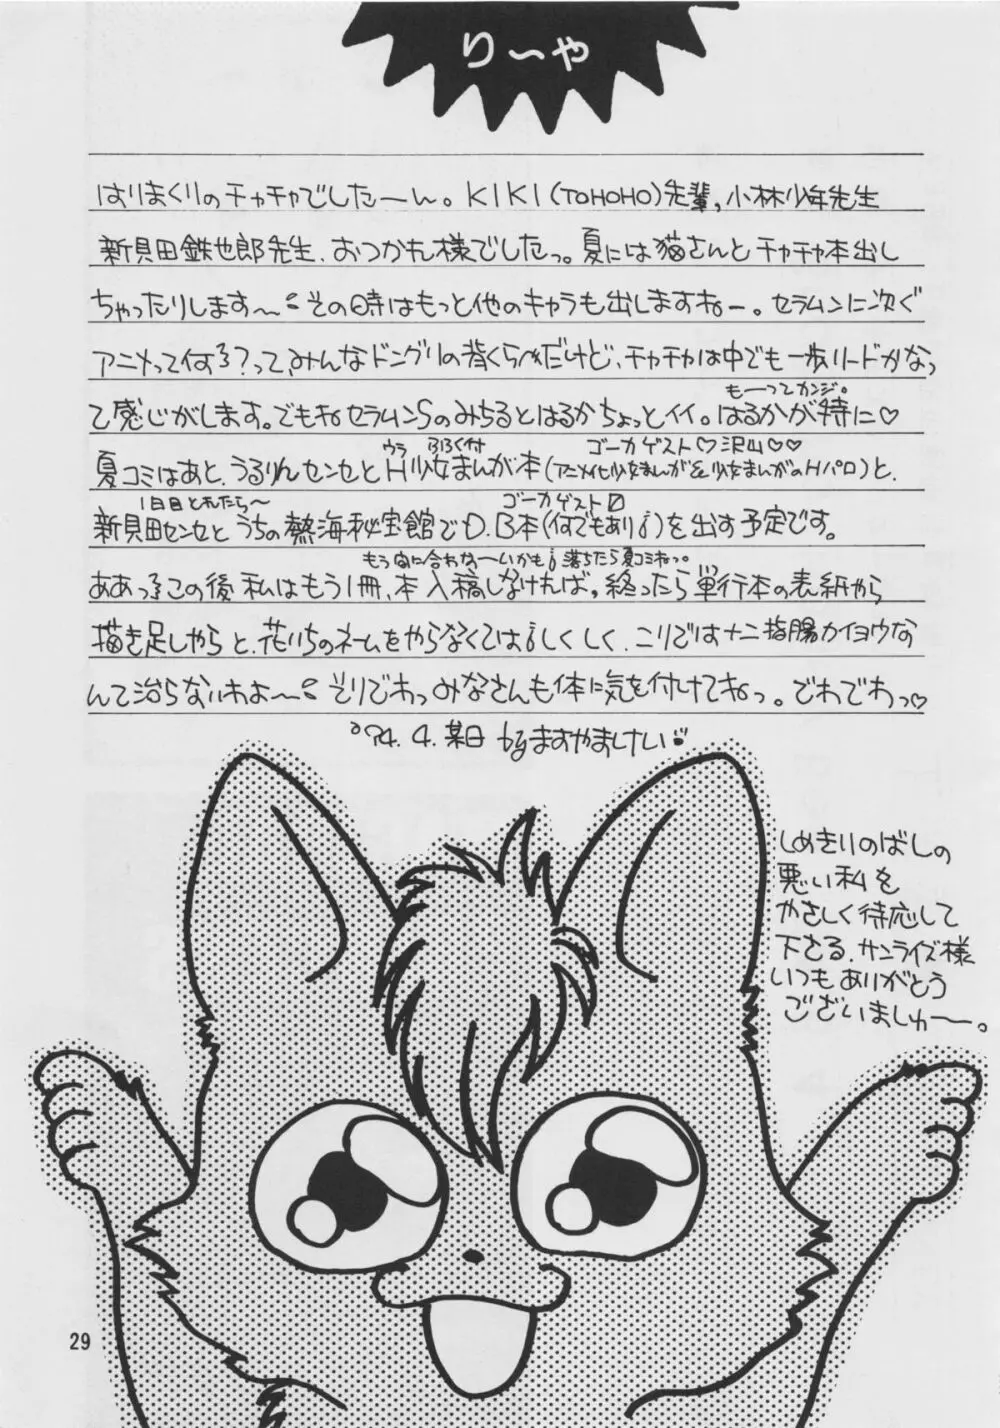 りーや
はりまくりのチャチャでしたーん。KIKI(TOHOHO)先輩,小林少年先生
新貝田鉄也郎先生、おつかれ様でしたっ。夏には猫さんとチャチャ本出し
ちゃったりします〜 その時はもっと他のキャラも出しますねー。セラムンに次ぐ
アニメって何ろ?って、みんなドングリの背くらべだけど、チャチャは中でも一歩リードかなっ
て感じがします。でもねセラムンSのみちるとはるかちょっとイイ。はるかが特に♡
もーってカンジ。
夏コミはあと、うるりんセンセとH少女まんが本(アニメイセ少女まんが&少女まんがのHパロ)と、
ウラ ふろく付 ゴーカゲスト♡沢山♡♡
新貝田センセとうちの熱海秘宝館でD.B本(何でもあり!)を出す予定です。
1日目とれたら〜 ゴーカゲスト
ああっこの後私はもう1冊、本入稿しなければ。終ったら単行本の表紙から
もう間に合わな〜いかも!落ちたら夏コミねっ。
描き足しやらと、花いちのネームをやらなくては!しくしく、こりでは十二指腸カイヨウな
んて治らないわよ〜 そりでわっみなさんも体に気を付けてねっ。でわでわっ♡
'94.4.某日 byますやましけい
しめきりのばしの
悪い私を
やさしく待応して
下さる、サンライズ様
いつもありがとう
ございましゅー。
29